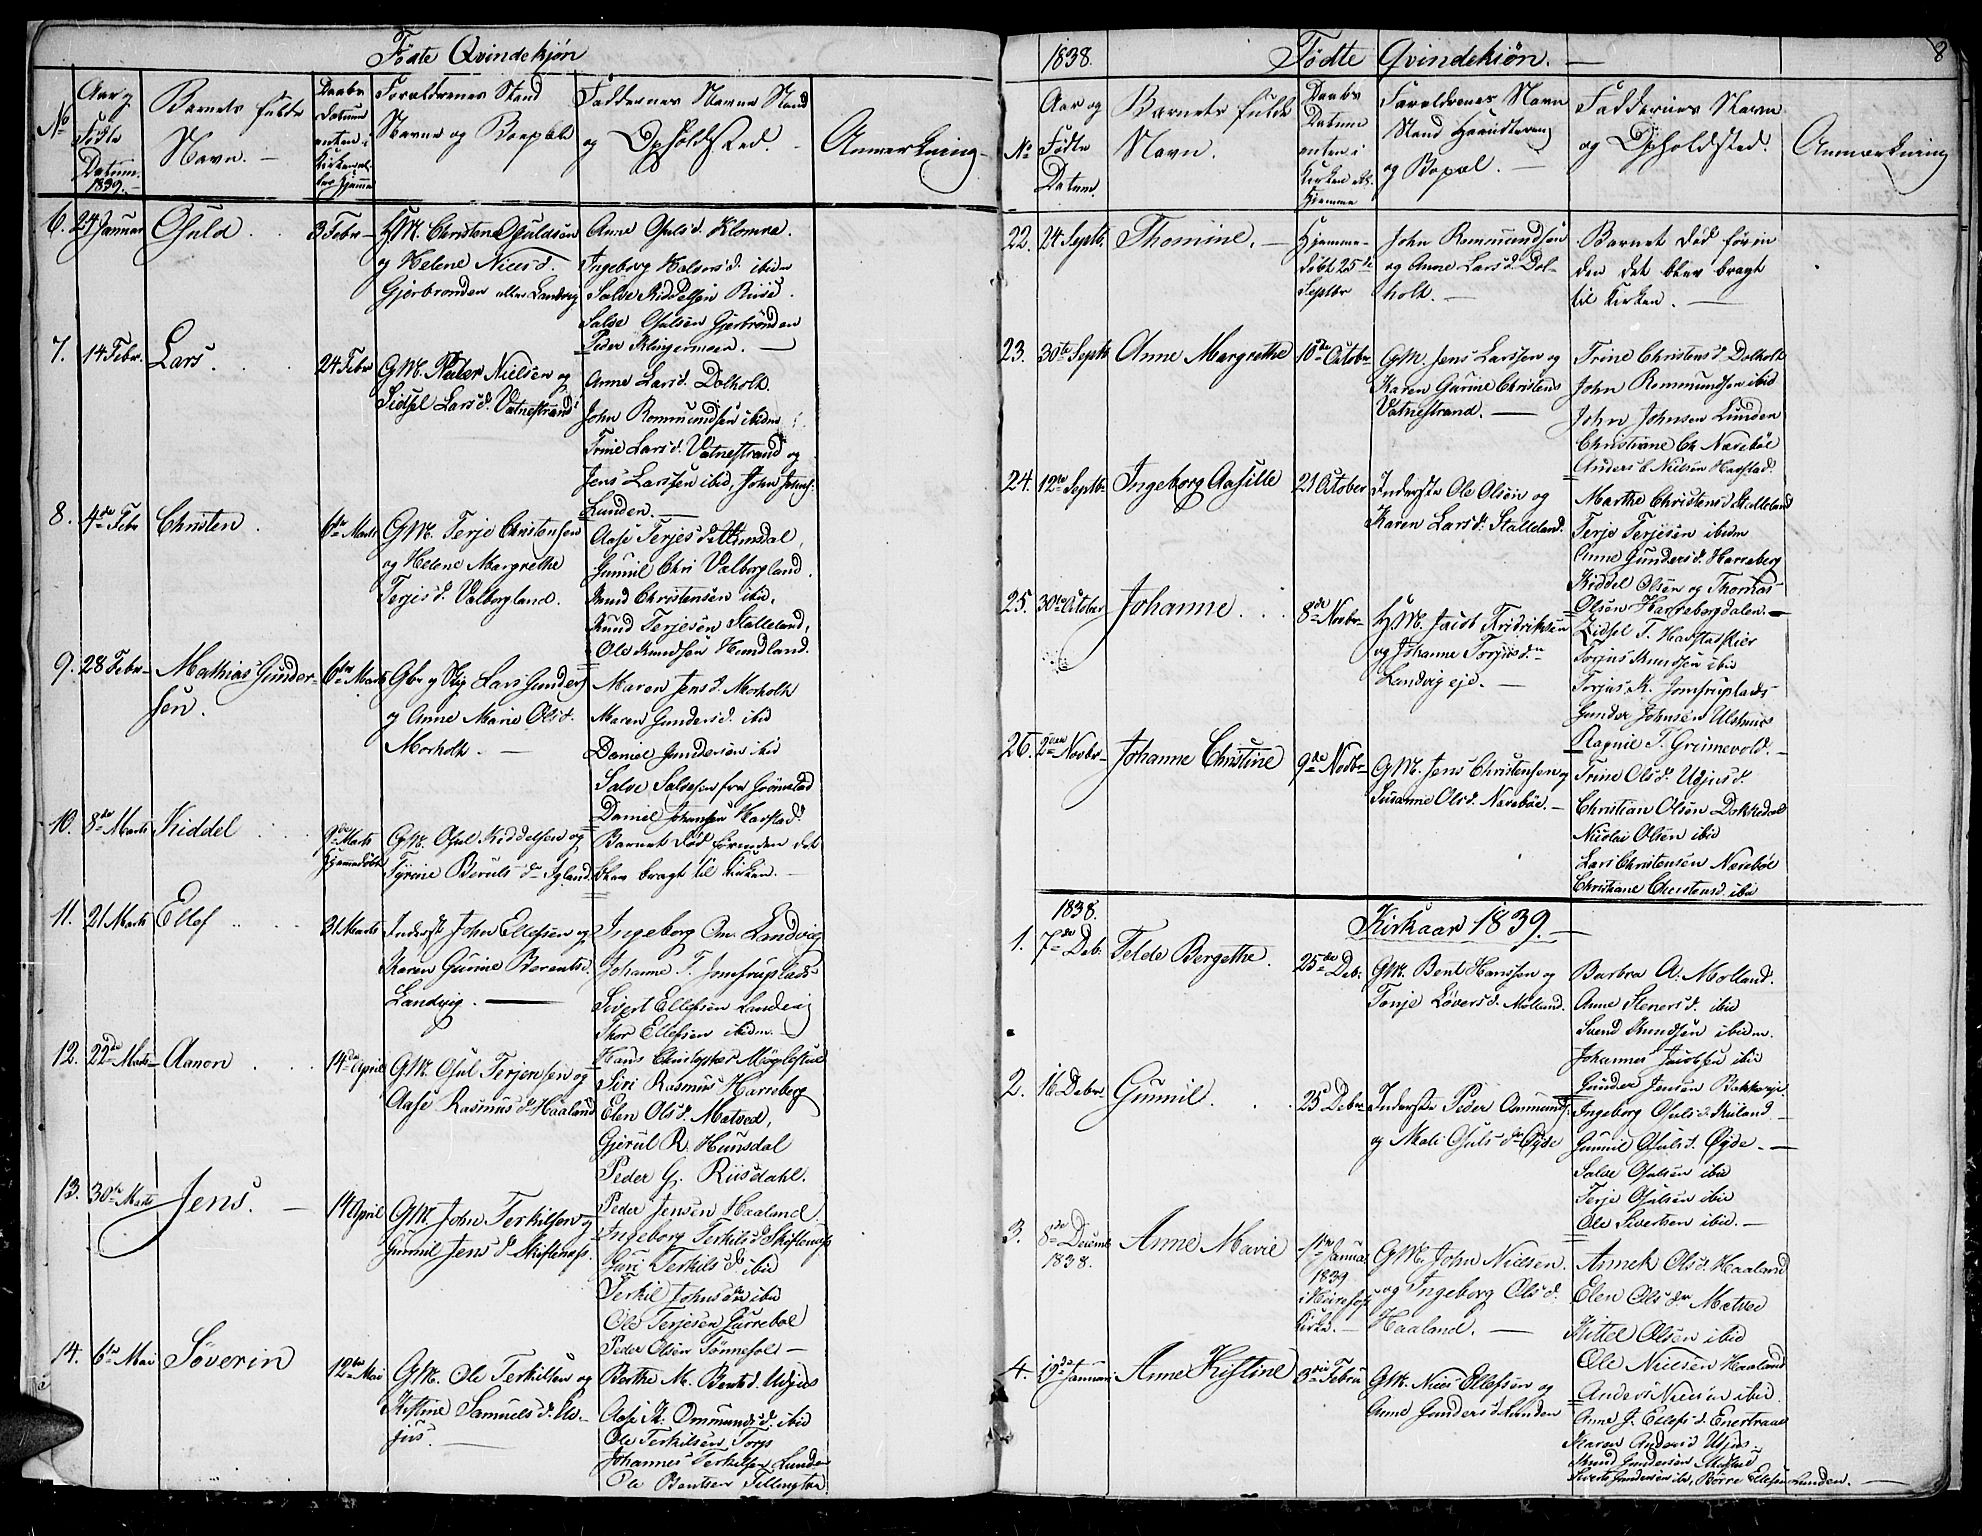 Fødte Qvindekjøn
No
Aar og Fødte Datum 1839.
Barnets fulde Navn.
Daabs Datum enten i Kirken eller hjemme
Forældrenes Stand Navne og Bopæl
Faddernes Navne Stand og Opholdsted.
Anmærkning
6. 24 Januar Osuld 3 Febr
HM. Christen Osuldsen
og Helene Nielsd.
Gjerbrønden Landvig
Anne Osulsd. Klomra.
Ingeborg Halvorsd. ibidm
Salve Kiddelsen Riise.
Salve Osulsen Gjerbrønden
Peder Klingermoen.
7. 14 Febr. Lars. 24 Febr
GM. Peder Nielsen og
Sidsel Larsd. Vatnestrand
Anne Larsd. Dolholt.
John Rommundsen ibidm
Trine Larsd. Vatnestrand og
Jens Larssen ibid, John Johns.
Lunden.
8. 4de Febr Christen. 6te Marts
GM. Terje Christensen
og Helene Margrethe
Terjesd. Valborgland.
Aase Terjesd.
Gunnil Chri Valborgland.
Knud Christensen ibid.
Knud Terjesen Stalleland,
Ole Knudsen Hundland.
9. 28 Febr Mathias Gunder-
sen. 6te Marts
Gbr og Skp Lars Gunders
og Anne Marie Olsd.
Morholt.
Maren Jensd. Morholt
Maren Gundersd. ibid
Daniel Gundersen ibid
Salve Salvesen fra Grimstad
Daniel Johansen Harstad.
10. 8de Marts Kiddel 9de Marts
hjemmedøbt
GM. Osul Kiddelsen og
Tyrine Berulsd. Igland.
Barnet død førenden det
blev bragt til Kirken.
11. 21 Marts Ellef 31 Marts
Inderst John Ellefsen og
Karen Gurine Berentsd.
Landvig.
Ingeborg Om. Landvig
Johanne T. Jomfruplads
Sivert Ellefsen Landvig
Thor Ellefsen ibidm.
12. 22de Marts Aanon 14de April
GM. Osul Terjersen og
Aase Rasmusd. Haaland
Hans Christopher Møglestue
Siri Rasmus Harreberg
Elen Olsd. Matved,
Gjerul R. Hunsdal
Peder G. Riisdahl.
13. 30te Marts Jens. 14 April
GM. John Terkilsen og
Gunnil Jensd. Skiftenæs.
Peder Jensen Haaland
Ingeborg Terkilsd. Skiftenæs
Guri Terkilsd. ibid
Terkil Johnsen ibid
Ole Terjesen Gurrebal
Peder Olsen Tønnesøl
14. 6te Mai Søverin 12te Mai
GM. Ole Terkilsen og
Kistine Samuelsd. Ud-
jus.
Berthe M. Bentsd. Udjus
Aase K. Ommundsd. ibid
Ole Terkilsen Torp
Johannes Terkilsen Lunden
Ole Bentsen Tellingtra
8
1838. Fødte Qvindekiøn.
No
Aar og Fødte Datum
Barnets fulde Navn.
Daabs Datum enten i Kirken eller Hjemme
Forældrenes Navn Stand Haandtering og Bopæl.
Faddernes Navn og Opholdsted.
Anmærkning
22. 24 Septbr. Thomine.
Hjemme-
døbt 25de
Septbr
John Rommundsen
og Anne Larsd. Dol-
holt.
Barnet død førin
den det blev bragt
til Kirken.
23. 30te Septbr Anne Margrethe 10de Octobr
GM. Jens Larssen og
Karen Gurine Christens
Vatnestrand.
Trine Christensd. Dolholt
John Rommundsen ibid
John Johnsen Lunden
Christiane Ch. Nærebøe
Anders C Nielsen Harstad.
24. 12te Septbr Ingeborg Aasille 21 October
Inderste Ole Olsen og
Karen Larsd. Stalleland.
Marthe Christensd. Stalleland
Terje Terjesen ibidm
Anne Gundersd. Harreberg
Kiddel Olsen og Thomas
Olsen Harrebergdalen.
25. 30te October Johanne. 8de Novbr
HM. Jacob Fridriksen
og Johanne Torjusd.
Landvig eje.
Zidsel T. Harstadkier
Torjus Knudsen ibid
Torjus K. Jomfruplads
Gunder Johnsen Ulstnus
Ragnil T. Greimevold.
26. 2den Novbr Johanne Christine 9de Novbr
GM. Jens Christensen og
Susanne Olsd. Nerebøe.
Trine Olsd. Udjusd.
Christian Olsen Dokkedal
Nicolai Olsen ibid
Lars Christensen Nærebøe
Christiane Christensd. ibid
1838. Kirkaar 1839.
1. 7de Deb. Telde Bergethe. 25de Deb.
GM. Bent Hanssen og
Tonje Løversd. Molland.
Barbra A. Molland.
Anne Stenersd. ibid
Svend Knudsen ibidm.
Johannes Jacobsen ibid
Gunder Jensen Bakkeeje
2. 16 Debr Gunnil. 25 Debr
Inderste Peder Ommunds
og Mali Osulsd. Øyde
Ingeborg Osulsd. Kuland
Gunnil Osulsd. Øyde.
Salve Osulsen ibid
Terje Osulsen ibid
Ole Sivertsen ibid.
3. 8de Decemb
1838. Anne Marie
1ste Januar
1839
i
Kirke.
GM. John Nielsen
og Ingeborg Olsd.
Haaland.
Annek Olsd. Haaland
Elen Olsd. Matved
Kittel Olsen ibid
Ole Nielsen Haaland
Anders Nielsen ibid.
4. 19de Januar Anne Kistine 3die Febru
GM. Niels Ellefsen og
Anne Gundersd. Lunden
Anne J. Ellefsd. Enertraae
Karen Andersd. Udjus
Knud Gundersen Molland
Siverts Gundersen ibd, Børre Ellefsen Lunden.